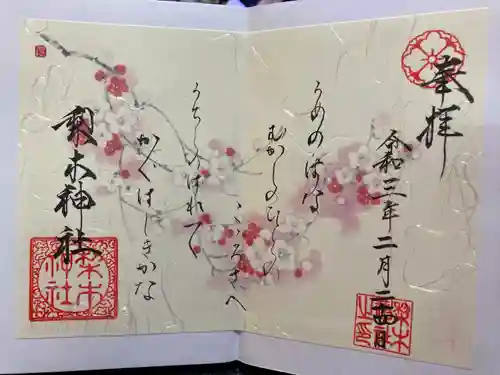 奉拝
令和三年二月二十四日
うめのはな
むかしのひとの
こゝろさへ
うちしのばれて
かくはしきかな
梨木神社
梨木神社